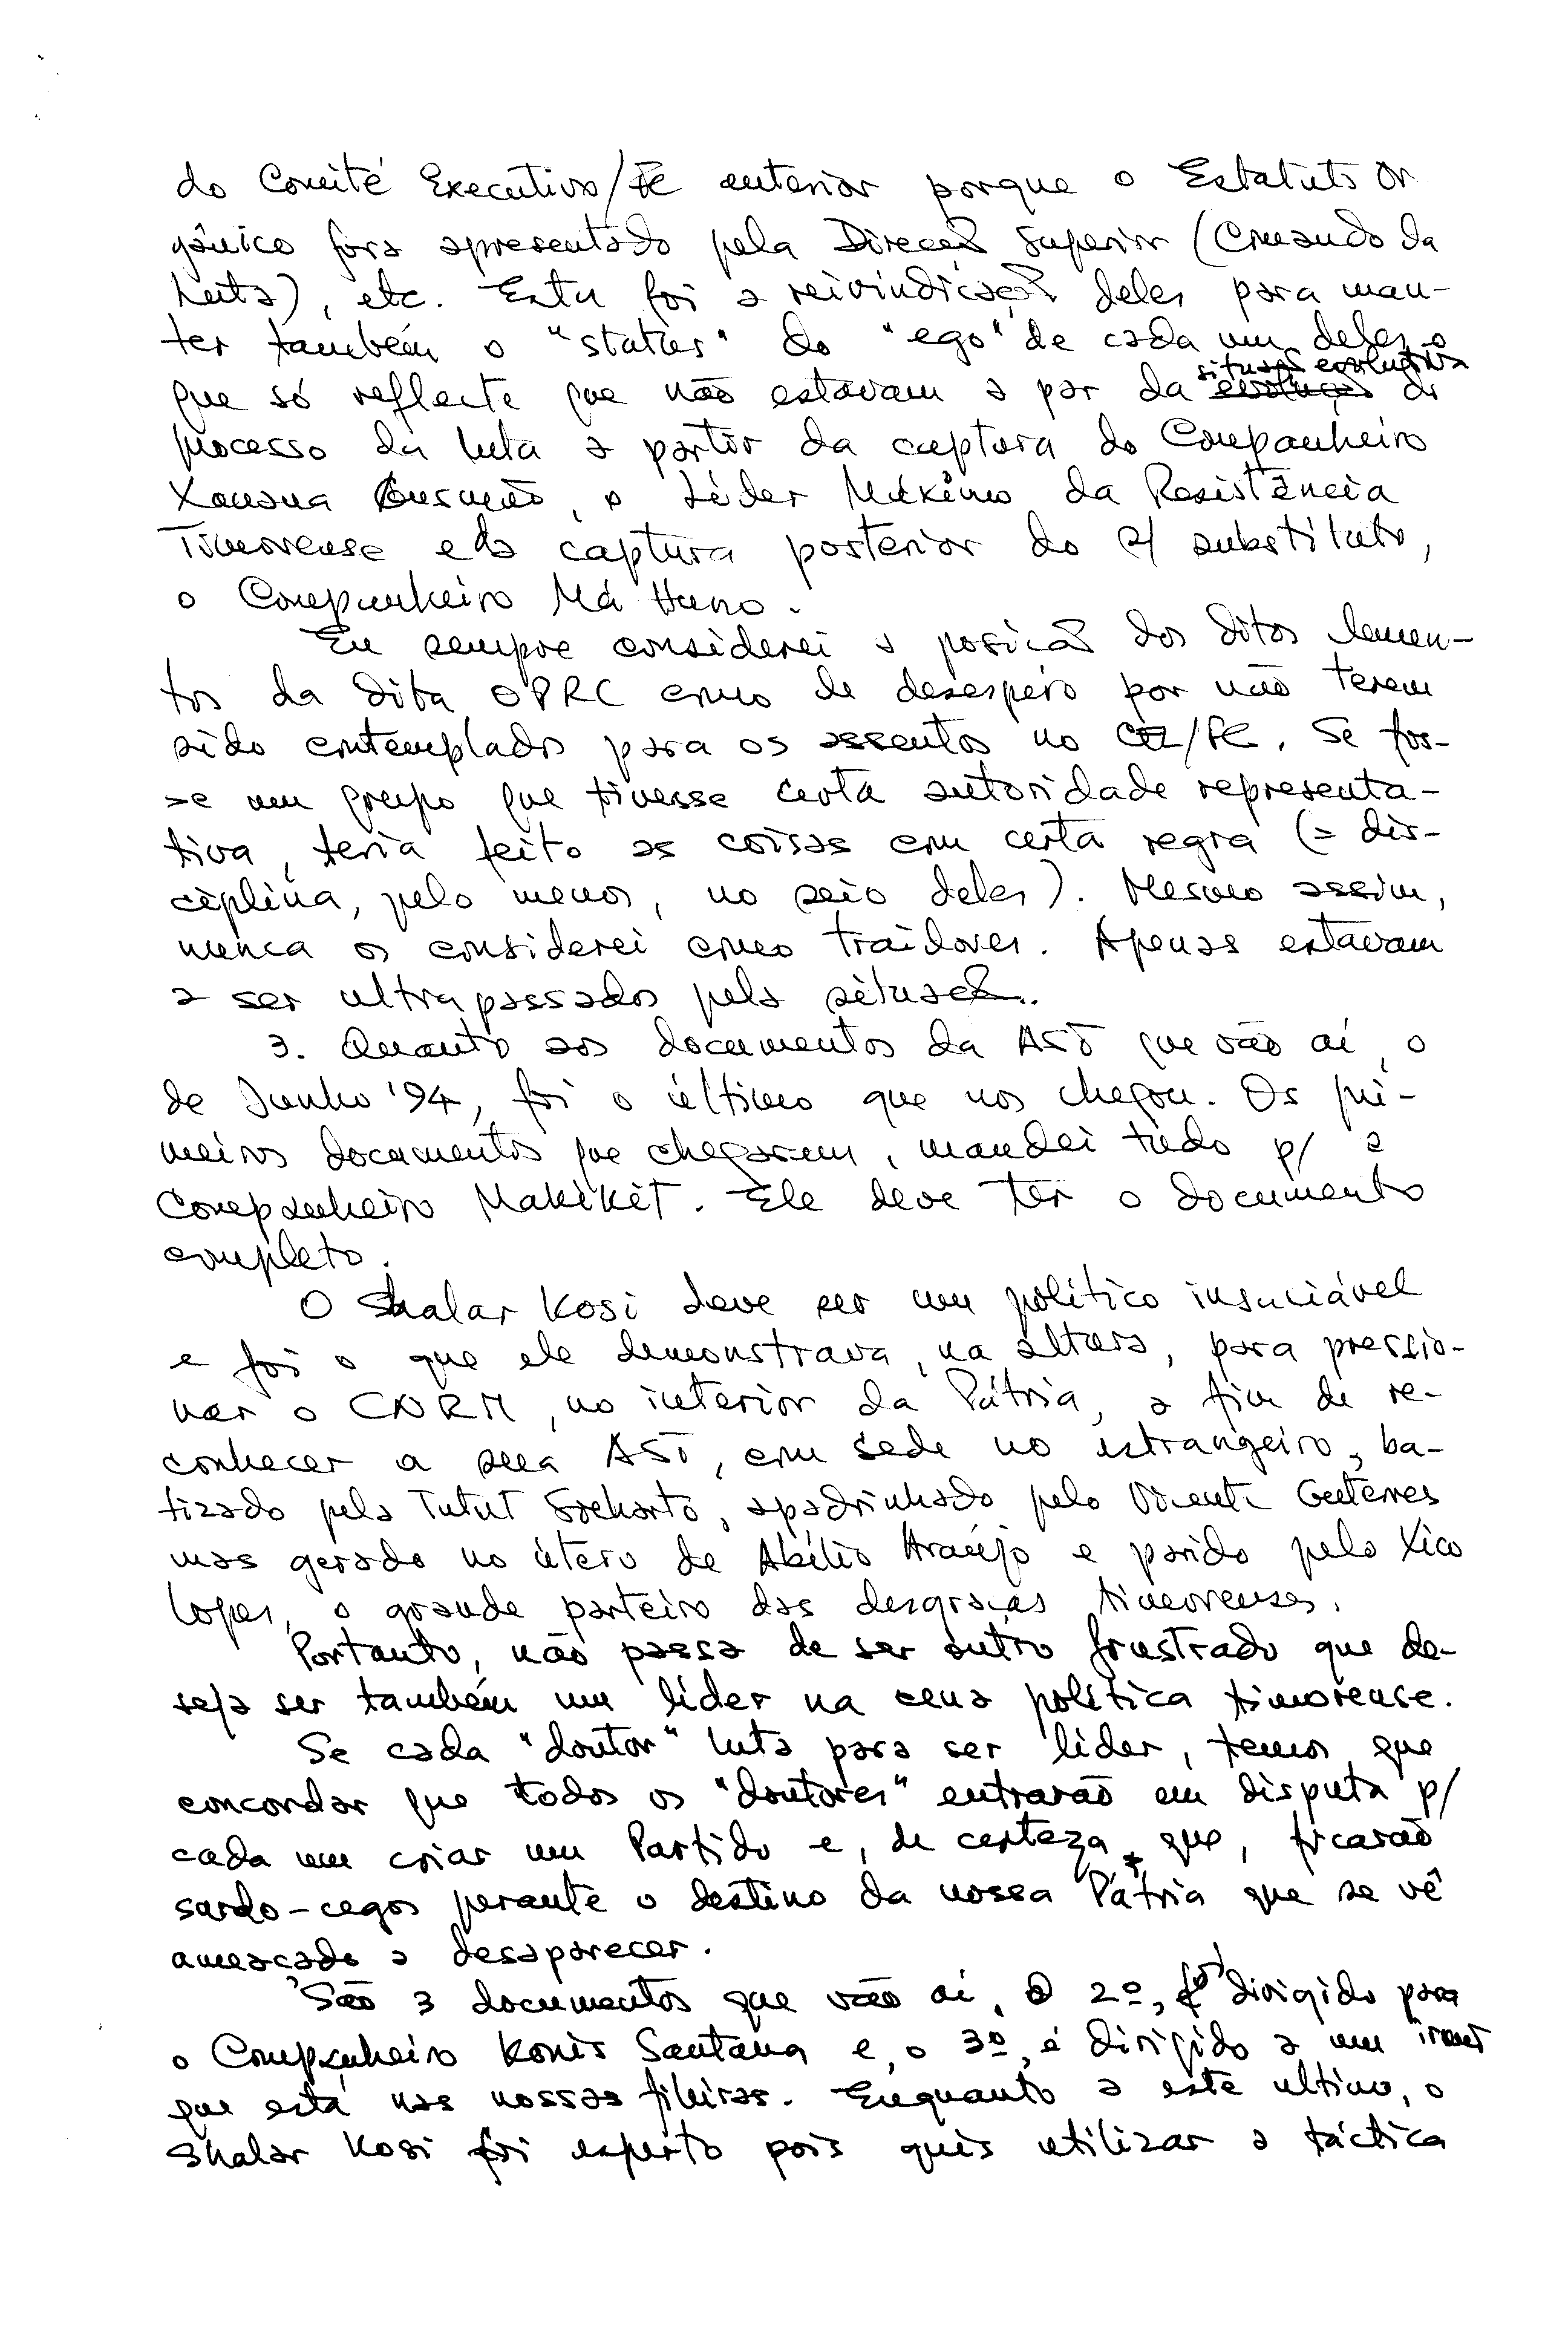 do Comité Executivo/FC anterior porque o Estatuto Or
gânico fora apresentado pela Direcção Superior (Comando da
Luta), etc. Esta foi a reivindicação deles para man-
ter também o "status" do "ego" de cada um deles o
que só reflecte que não estavam a par da situação evolutiva do
processo da luta a partir da captura do Companheiro
Xanana Gusmão, o Líder Máximo da Resistência
Timorense e da captura posterior do s/ substituto,
o Companheiro Má Huno.
Eu sempre considerei a posição dos ditos elemen-
tos da dita OPRC como de desespero por não terem
sido contemplados para os assentos no CE/FC. Se fos-
se um grupo que tivesse certa autoridade representa-
tiva, teria feito as coisas com certa regra (= dis-
ciplina, pelo menos, no seio deles). Mesmo assim,
nunca os considerei como traidores. Apenas estavam
a ser ultrapassados pela situação.
3. Quanto aos documentos da AST que vão aí, o
de Junho '94, foi o último que nos chegou. Os pri-
meiros documentos que chegaram, mandei tudo p/ a
Companheiro Makikit. Ele deve ter o documento
completo.
O Shalar Kosi deve ser um político insaciável
e foi o que ele demonstrava, na altura, para pressio-
nar o CNRM, no interior da Pátria, a fim de re-
conhecer a sua AST, com sede no estrangeiro, ba-
tizado pela Tutut Soeharto, apadrinhado pelo Vicente Guterres
mas gerado no útero de Abílio Araújo e parido pelo Xico
Lopes, o grande parteiro das desgraças timorenses.
Portanto, não passa de ser outro frustrado que de-
seja ser também um líder na cena política timorense.
Se cada "doutor" luta para ser líder, temos que
concordar que todos os "doutores" entrarão em disputa p/
cada um criar um Partido e, de certeza que, ficarão
surdo-cegos perante o destino da nossa Pátria que se vê
ameaçado a desaparecer.
São 3 documentos que vão aí. O 2º, foi dirigido para
o Companheiro Konis Santana e, o 3º, é dirigido a um irmão
que está nas nossas fileiras. Enquanto a este ultimo, o
Shalar Kosi foi esperto pois quis utilizar a táctica